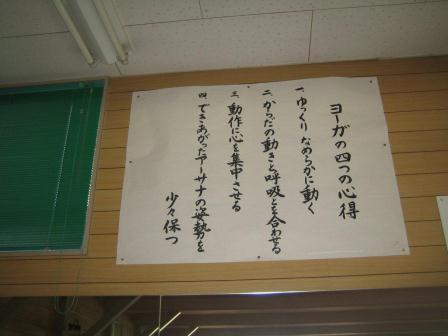 ヨーガの四つの心得
一、ゆっくりなめらかに動く
二、からだの動きと呼吸とを合わせる
三、動作に心を集中させる
四、できあがったアーサナの姿勢を
少々保つ